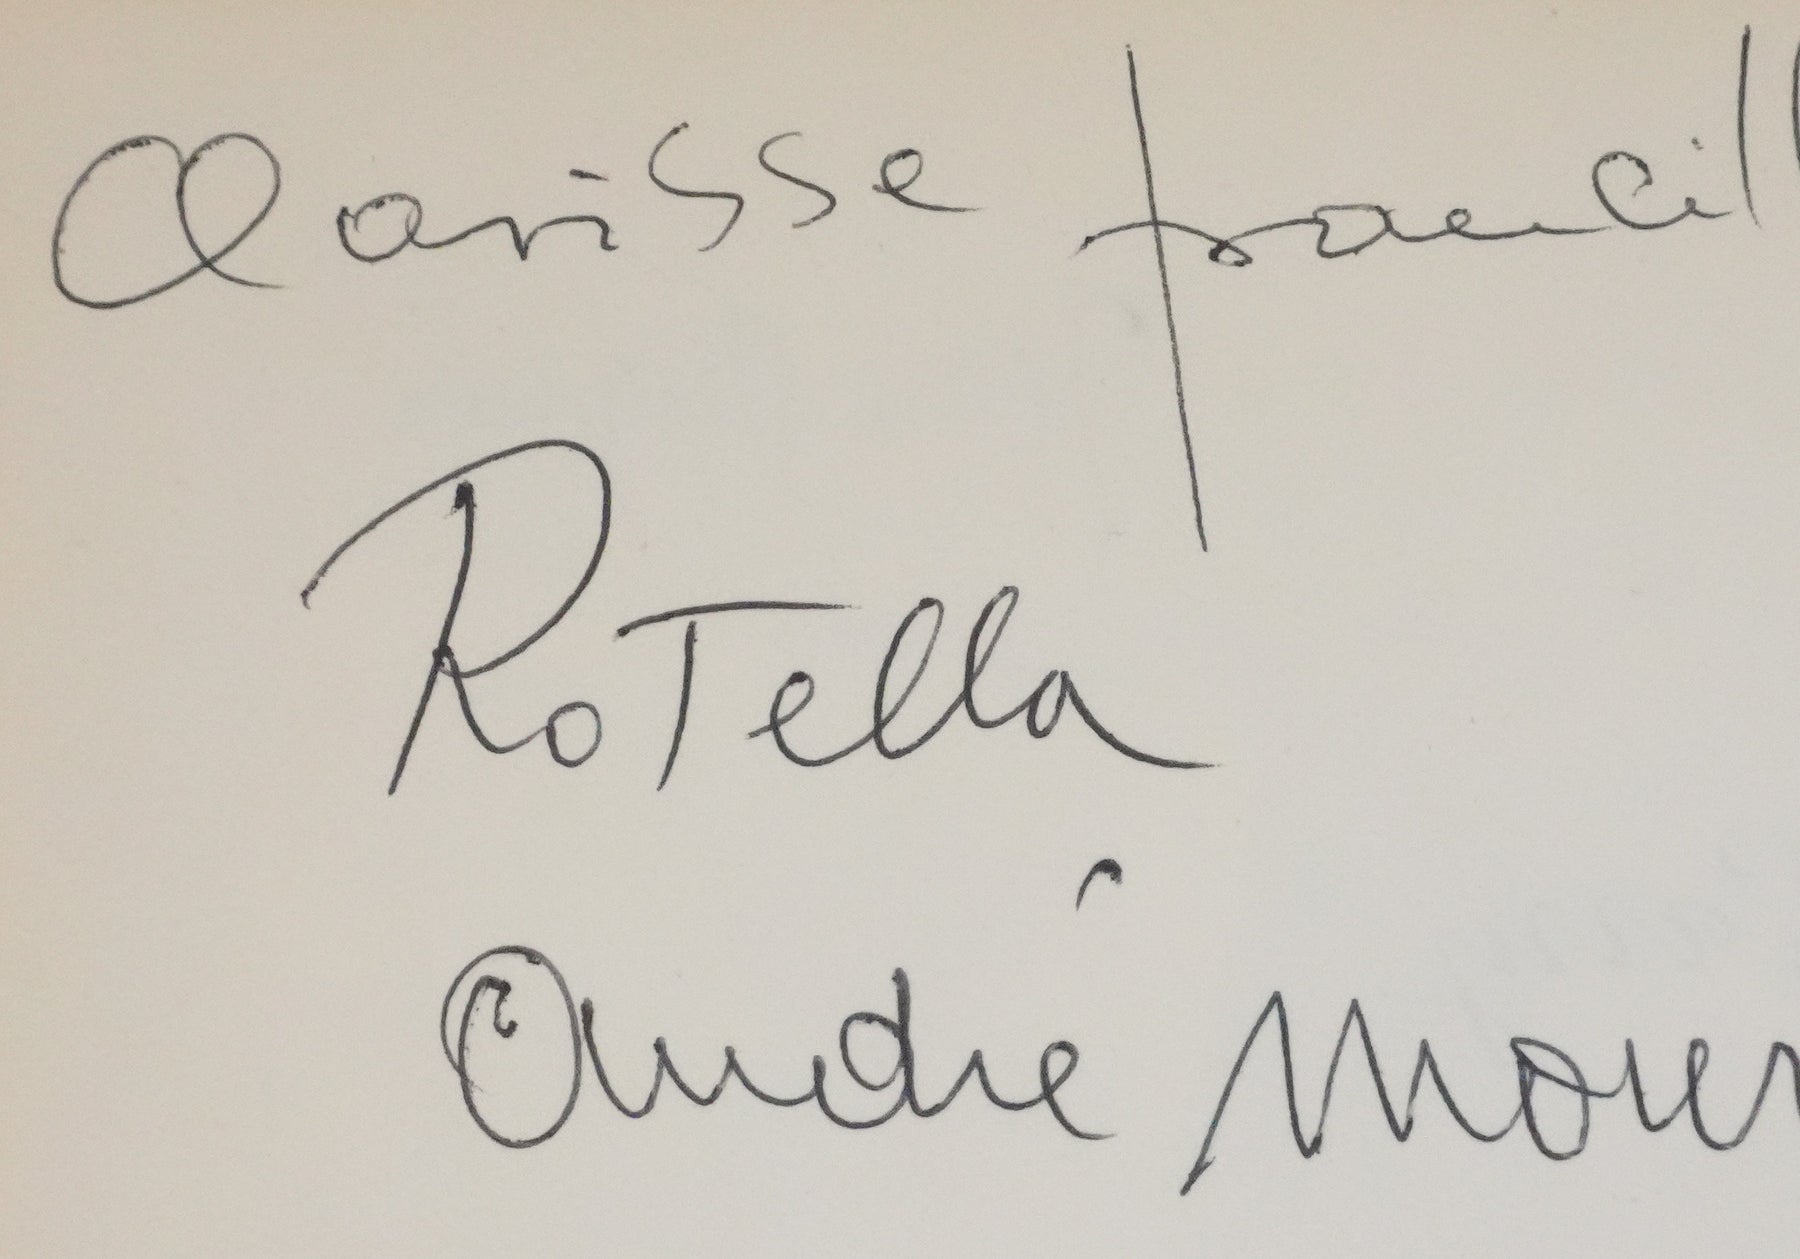 Clarisse francill
Rotella
André Mour